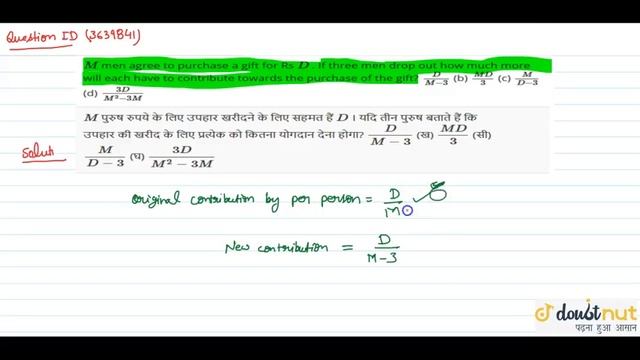 Question ID (3639841)
M men agree to purchase a gift for Rs D . If three men drop out how much more
will each have to contribute towards the purchase of the gift? D/(M−3) (b) MD/3 (c) M/(D−3)
(d) 3D/(M²−3M)
M पुरुष रुपये के लिए उपहार खरीदने के लिए सहमत हैं D । यदि तीन पुरुष बताते हैं कि
उपहार की खरीद के लिए प्रत्येक को कितना योगदान देना होगा? D/(M − 3) (ख) MD/3 (सी)
M/(D − 3) (घ) 3D/(M² − 3M)
Solut
Original contribution by per person = D/M
New contribution = D/(M-3)
doubtnut
पढ़ना हुआ आसान